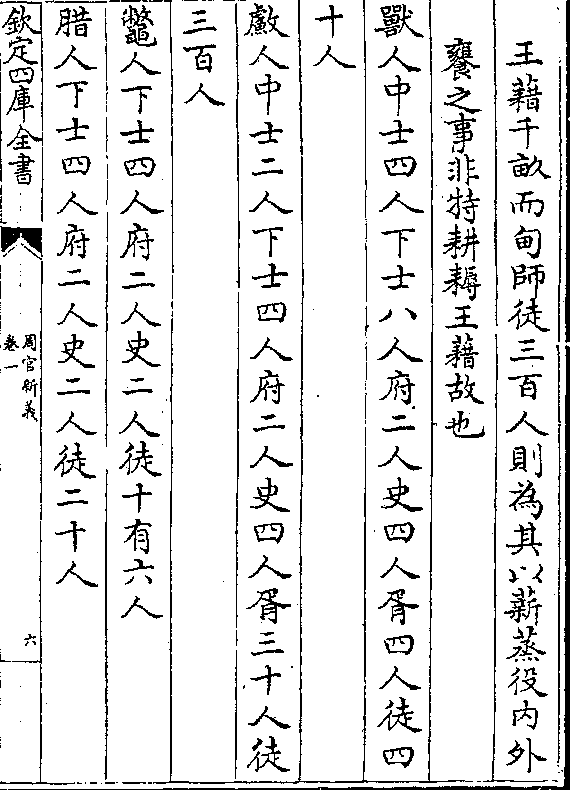 王藉千畝而甸師徒三百人則為其以薪蒸役内外
饔之事非特耕耨王藉故也
獸人中士四人下士八人府二人史四人胥四人徒四
十人
䱷人中士二人下士四人府二人史四人胥三十人徒
三百人
鼈人下士四人府二人史二人徒十有六人
腊人下士四人府二人史二人徒二十人
欽定四庫全書
周官新義
卷一
六